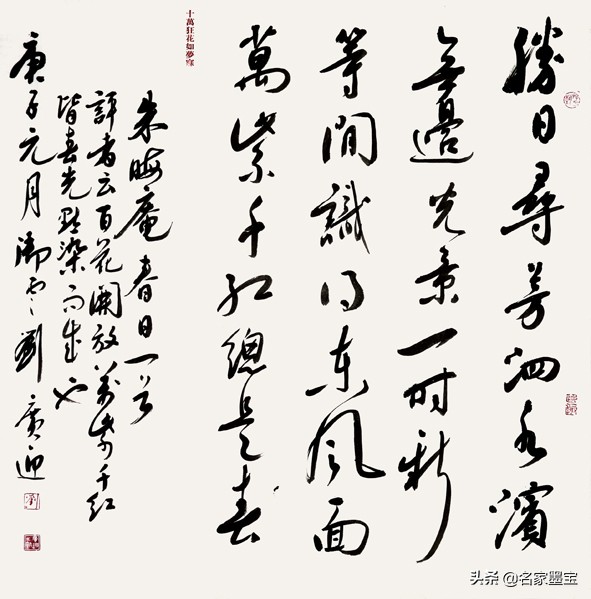 勝日尋芳泗水濱
無邊光景一時新
等間識得東風面
萬紫千紅總是春
十萬狂花如夢寐
朱晦庵春日一首
評者云百花開放萬紫千紅
皆春光點染而成也
庚子元月御雲劉廣迎
头条 @名家墨宝